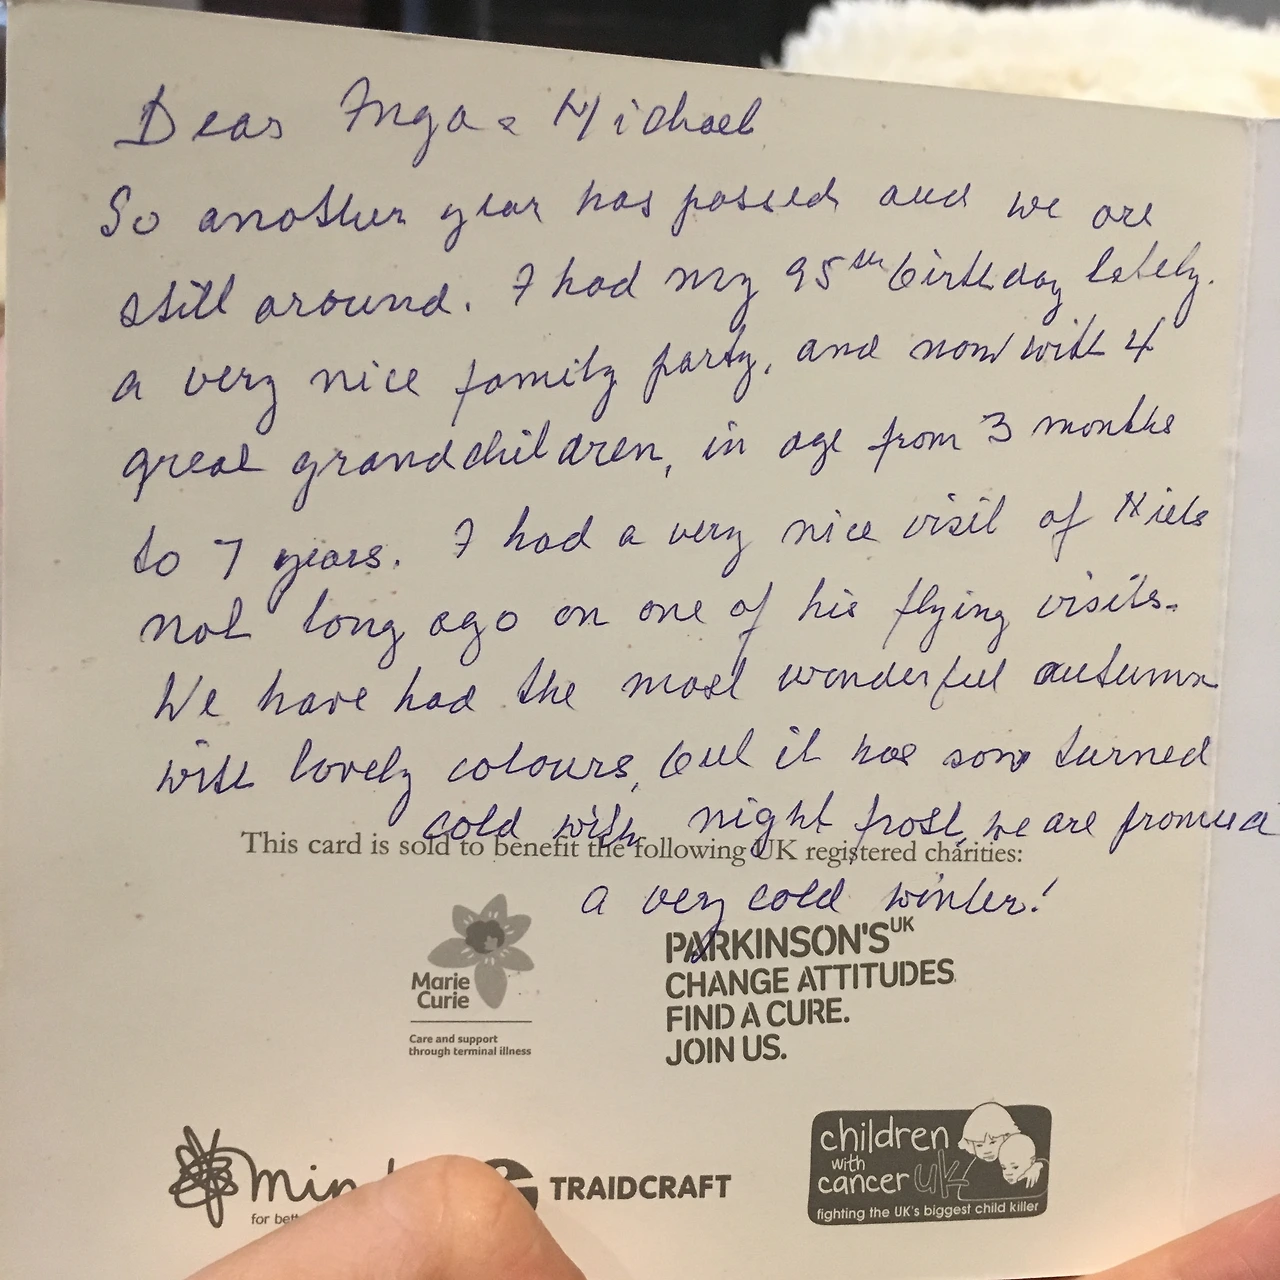 Dear Inga & Michael
So another year has passed and we are
still around. I had my 95th birthday lately.
a very nice family party, and now with 4
great grandchildren, in age from 3 months
to 7 years. I had a very nice visit of Niels
not long ago on one of his flying visits.
We have had the most wonderful autumn
with lovely colours, but it has now turned
cold with night frost, we are
This card is sold to benefit the following UK registered charities:
a very cold winter!
Marie
Curie
Care and support
through terminal illness
PARKINSON'S UK
CHANGE ATTITUDES.
FIND A CURE.
JOIN US.
min
for bett
TRAIDCRAFT
children
with
cancer uk
fighting the UK's biggest child killer